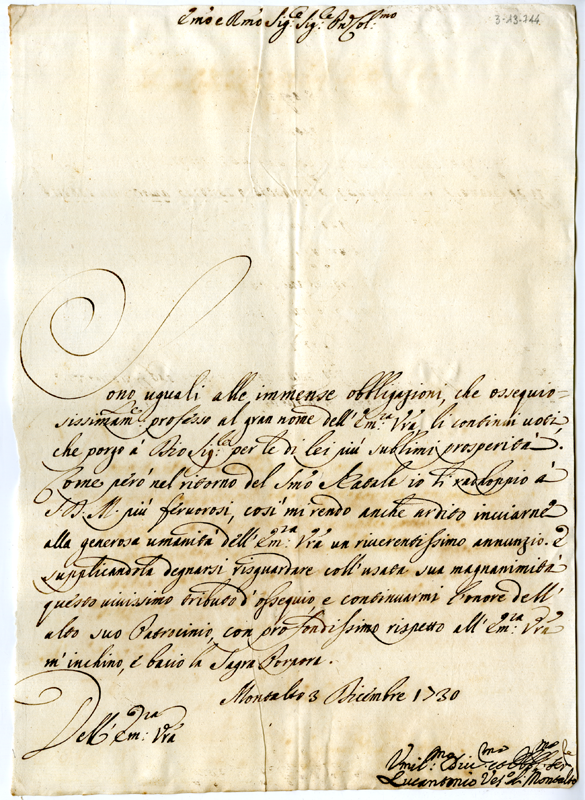 Emõ e Rmõ Sig.re Sig.re Pñe Col.mo
3-13-244
Sono uguali alle immense obbligazioni, che ossequio=
sissimam.e professo al gran nome dell'Em.za Vrã, li continui voti
che porgo à Dio Sig.re per le di lei più sublimi prosperità.
Come però nel ritorno del Smõ Natale io li raddoppio à
S. D. M. più fervorosi, così mi rendo anche ardito inviarne
alla generosa umanità dell'Em.za Vrã un riverentissimo annunzio. E
supplicandola degnarsi risguardare coll'usata sua magnanimità
questo vivissimo tributo d'ossequio, e continuarmi l'onore dell'
alto suo Patrocinio, con profondissimo rispetto all'Em.za Vrã
m'inchino, e bacio la Sagra Porpora.
Montalto 3 Dicembre 1730
Dell'Em.za Vrã
Umil.mo Div.mo ed Obb.mo Ser.e
Lucantonio Ves.o di Montalto